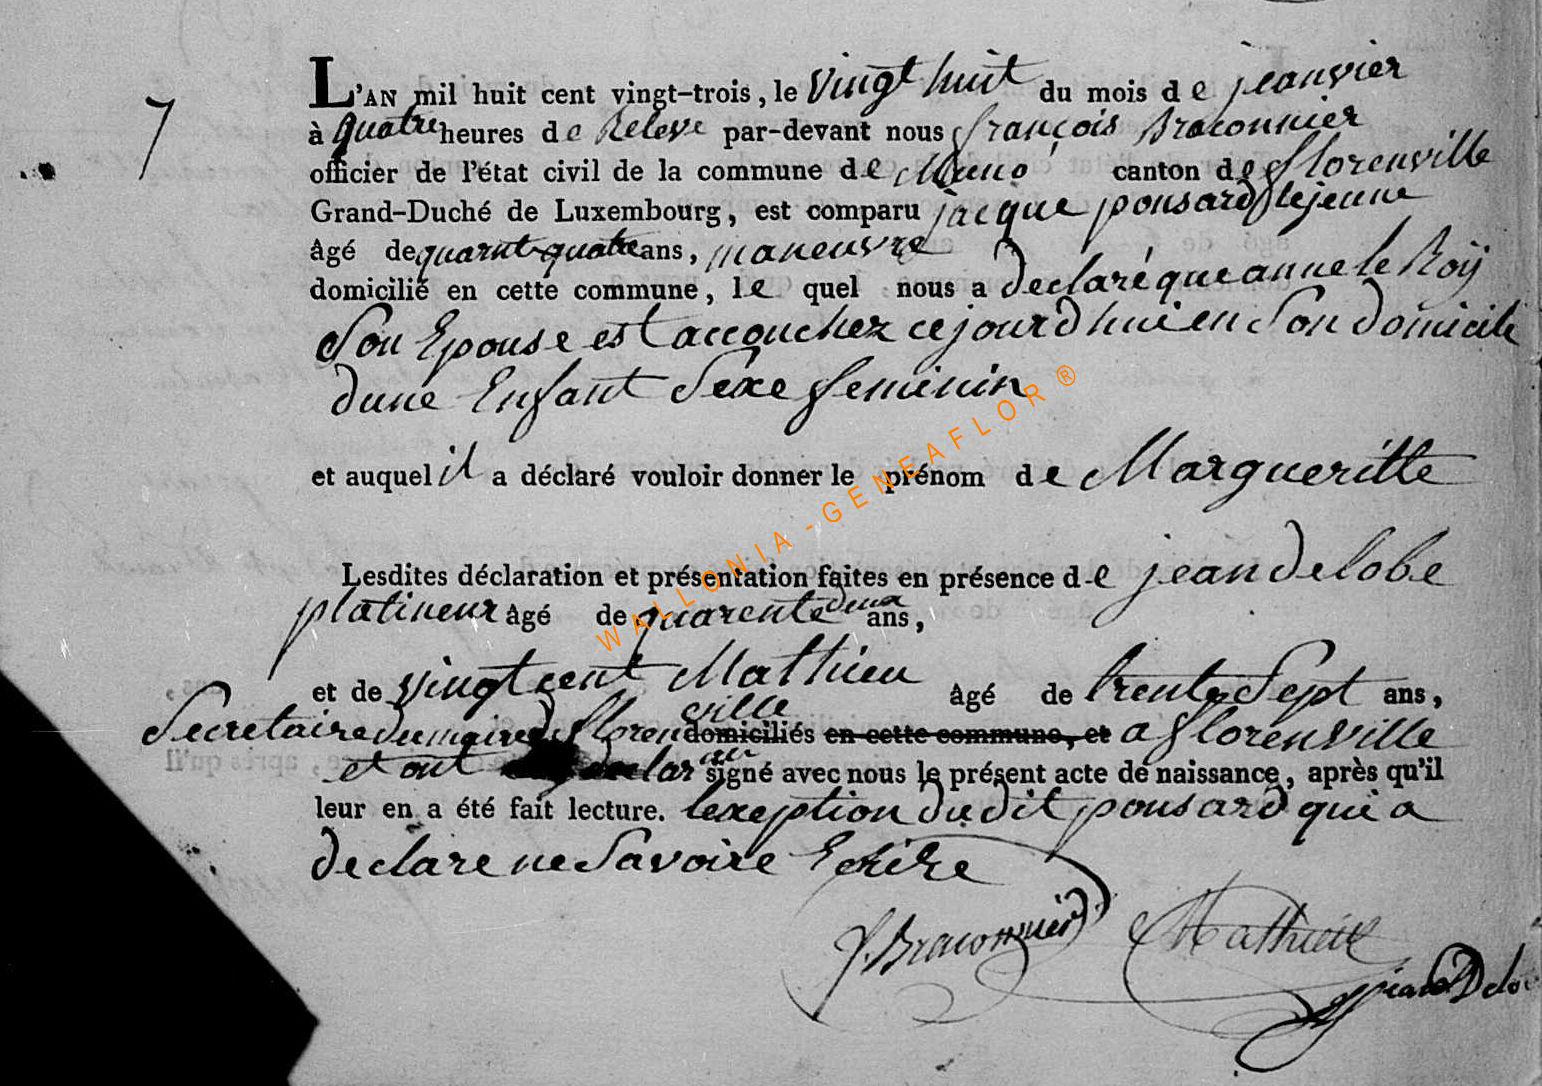 7
L'AN mil huit cent vingt-trois, le vingt huit du mois de jeanvier
à quatre heures de Releve par-devant nous françois Braconnier
officier de l'état civil de la commune de Muno canton de florenville
Grand-Duché de Luxembourg, est comparu jacque ponsard lejeune
âgé de quarnt quatre ans, maneuvre
domicilié en cette commune, le quel nous a declaré que anne le Roÿ
Son Epouse est accouchez ce jourdhui en Son domicile
dune Enfant Sexe feminin
et auquel il a déclaré vouloir donner le prénom de Margueritte
Lesdites déclaration et présentation faites en présence de jean delobe
platineur âgé de quarente deux ans,
et de vingtcent Mathieu âgé de trente Sept ans,
Secretaire du maire de florenville domiciliés en cette commune, et a florenville
et ont signé avec nous le présent acte de naissance, après qu'il
leur en a été fait lecture. lexeption du dit ponsard qui a
declare ne Savoire Ecrire
f. Braconnier Mathieu
WALLONIA-GENEAFLOR ®